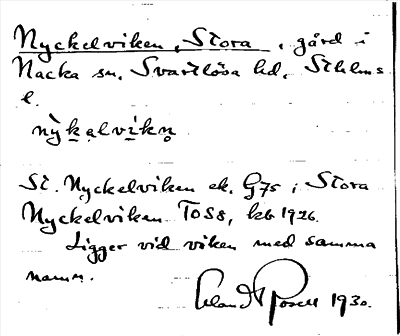 Nyckelviken, Stora, gård i
Nacka sn. Svartlösa hd. Sthlms
l.
nỳḵạlvi̱kn̥
St. Nyckelviken ek. G75 i Stora
Nyckelviken TO58, kb 1926.
Ligger vid viken med samma
namn.
Erland Rosell 1930.